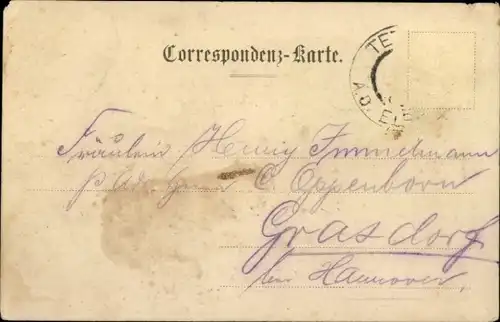 Correspondenz-Karte.
TE
A.D. E
Fräulein Henny Immelmann
p. Adr. C. Oppenborn
Grasdorf
bei Hannover.